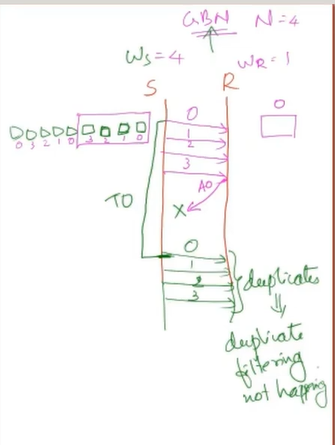 GBN N=4
Ws=4 WR=1
S R
0
0
1
2
3
0 3 2 1 0 3 2 1 0
A0
TO
X
0
1
2
3
duplicates
duplicate
filtering
not happening